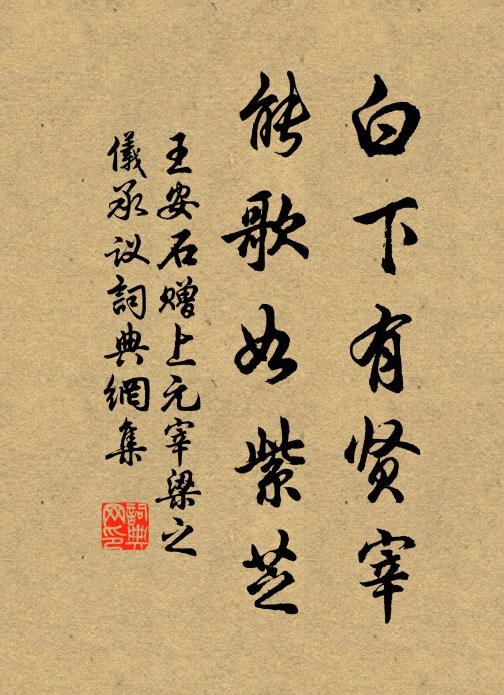 白下有贤宰
能歌如紫芝
王安石赠上元宰梁之
儀承议詞典網集
詞典网印